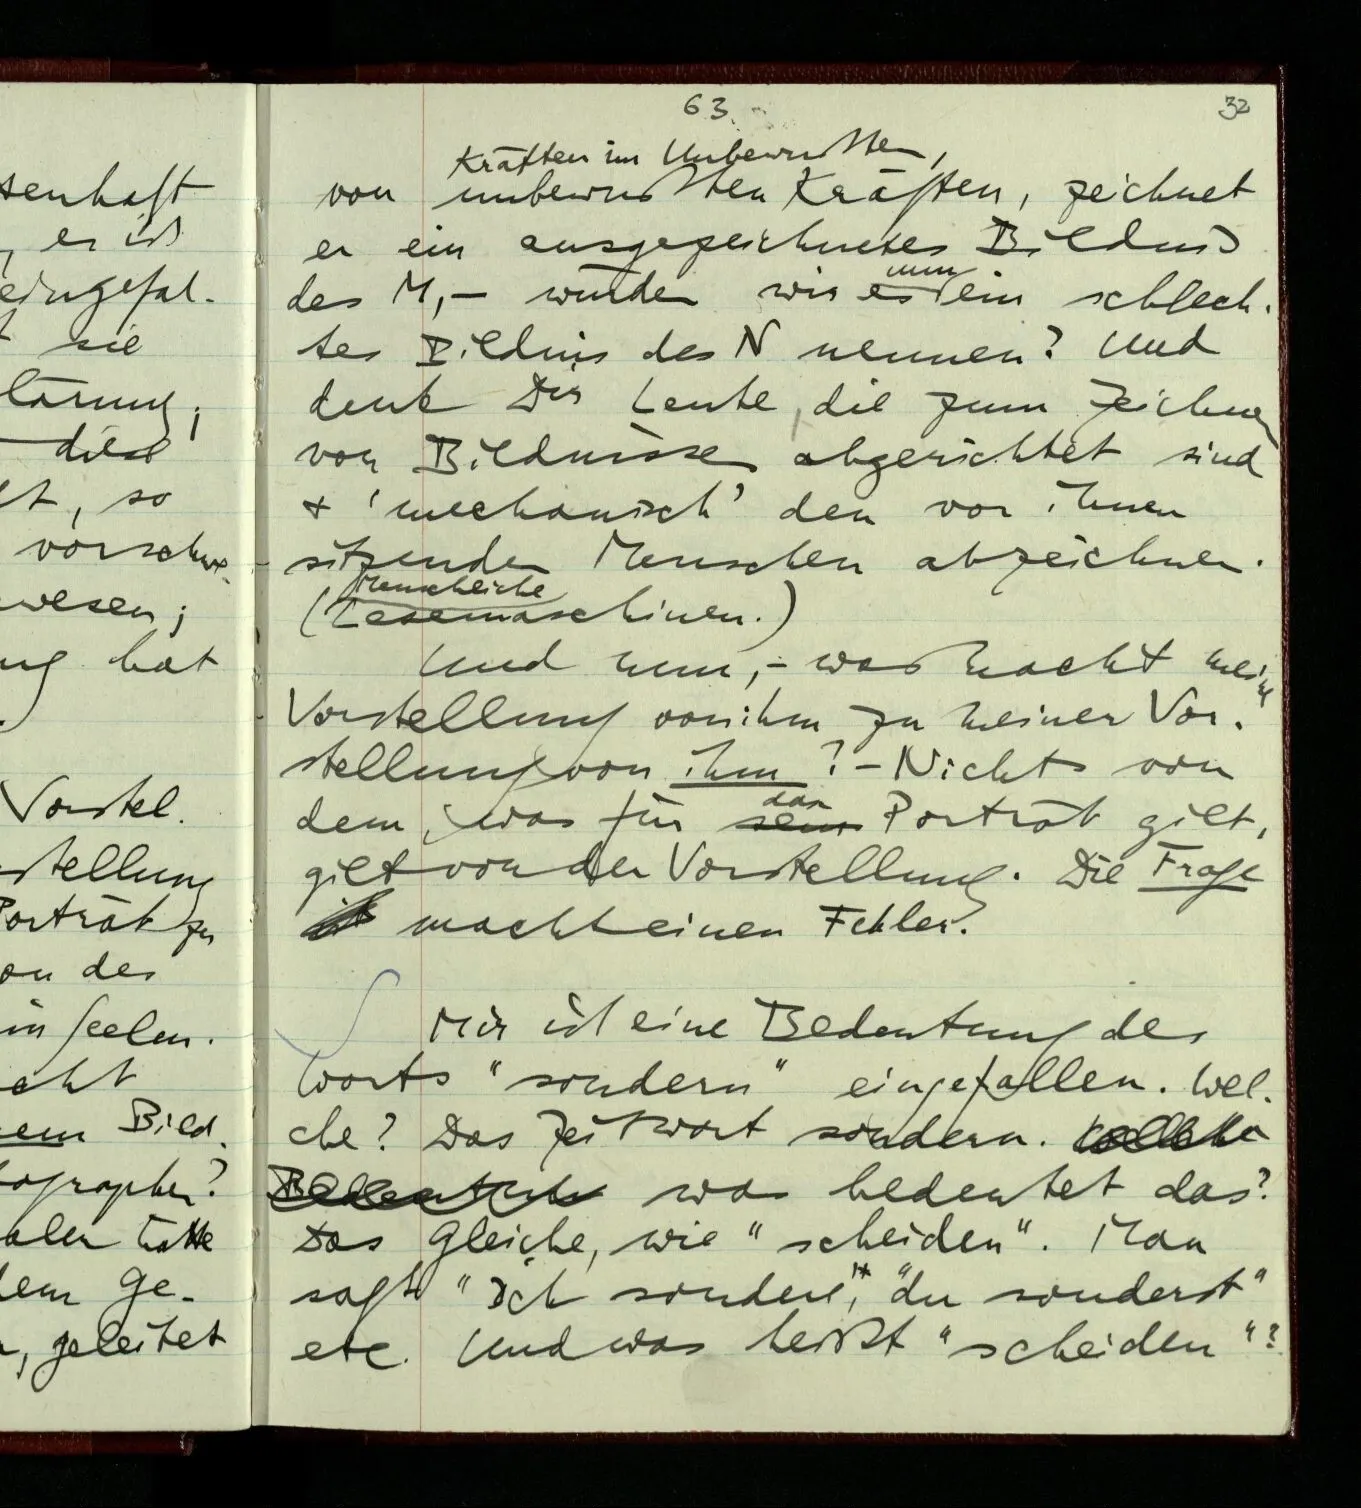 senhaft
, er ist
eingefal-
sie
lärung;
diese
, so
vorschwe-
wesen;
ung hat
Vorstel-
stellung
Porträt zu
on des
in seelen-
cht
nem Bild
tographen?
aler hätte
dem ge-
, geleitet
63
32
Kräften im Unbewußten,
von unbewußten Kräften, zeichnet
er ein ausgezeichnetes Bildnis
nun
des M, – würden wir es ein schlech-
tes Bildnis des N nennen? Und
denk Dir Leute, die zum Zeichnen
von Bildnissen abgerichtet sind
+ 'mechanisch' den vor ihnen
sitzenden Menschen abzeichnen.
Menschliche
(Lesemaschinen.)
Und nun, – was macht meine
Vorstellung von ihm zu meiner Vor-
stellung von ihm? – Nichts von
das
dem, was für sein Porträt gilt,
gilt von der Vorstellung. Die Frage
macht einen Fehler.
Mir ist eine Bedeutung des
Worts "sondern" eingefallen. Wel-
che? Das Zeitwort sondern.
Was bedeutet das?
Das Gleiche, wie "scheiden". Man
sagt "Ich sondere", "du sonderst"
etc. Und was heißt "scheiden"?